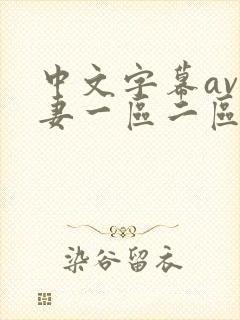 中文字幕av
妻一區二區
染谷留衣